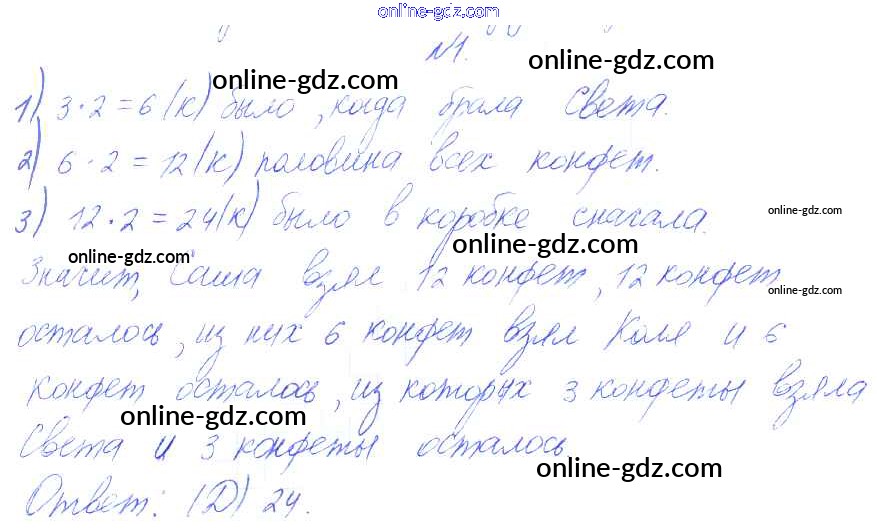 online-gdz.com
№1.
online-gdz.com
online-gdz.com
1) 3·2=6 (к) было, когда брала Света.
2) 6·2=12 (к) половина всех конфет.
3) 12·2=24 (к) было в коробке сначала.
online-gdz.com
online-gdz.com
online-gdz.com
Значит, Саша взял 12 конфет, 12 конфет
online-gdz.com
осталось, из них 6 конфет взял Коля и 6
конфет осталось, из которых 3 конфеты взяла
online-gdz.com
Света и 3 конфеты осталось
online-gdz.com
Ответ: (D) 24.